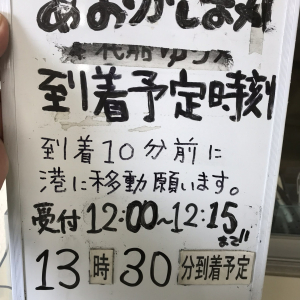 あおがしま丸
到着予定時刻
到着10分前に
港に移動願います。
受付12:00~12:15まで
13時30分到着予定